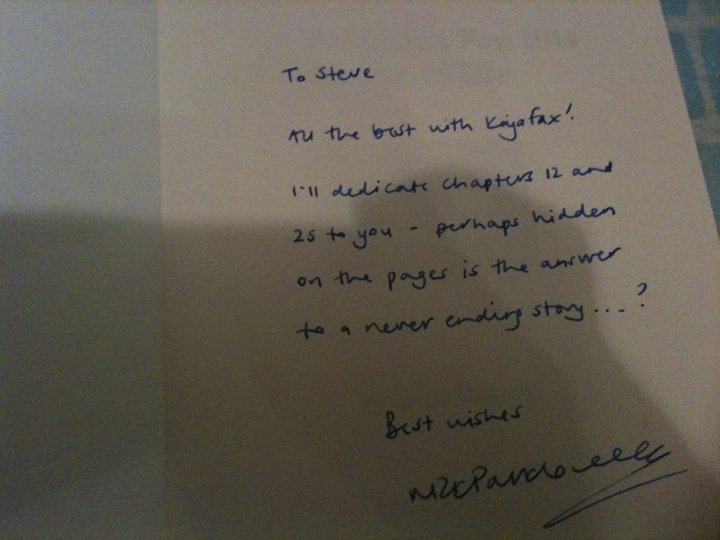 To Steve
All the best with Kajafax!
I'll dedicate chapters 12 and
25 to you - perhaps hidden
on the pages is the answer
to a never ending story...?
Best wishes